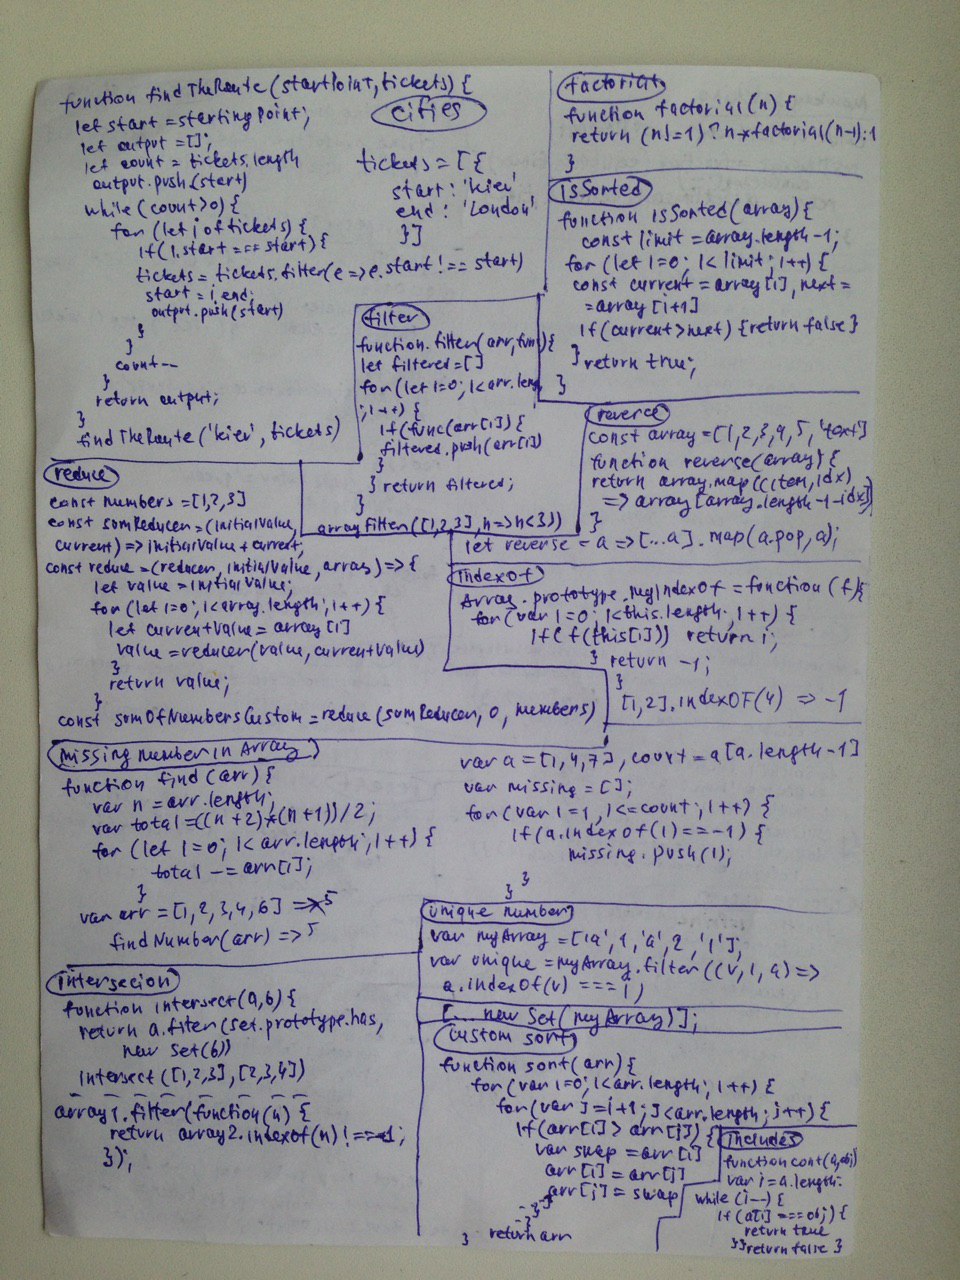 function findTheRoute(startPoint, tickets) {
let start = startingPoint;
let output = [];
let count = tickets.length
output.push(start)
while (count>0) {
for (let i of tickets) {
if(i.start === start) {
tickets = tickets.filter(e => e.start !== start)
start = i.end;
output.push(start)
}
}
count--
}
return output;
}
findTheRoute('kiev', tickets)
cities
tickets = [{
start: 'kiev'
end: 'London'
}]
factorial
function factorial(n) {
return (n!=1) ? n*factorial(n-1):1
}
isSorted
function isSorted(array) {
const limit = array.length-1;
for (let i=0; i<limit; i++) {
const current = array[i], next =
= array[i+1]
if(current>next) {return false}
} return true;
}
filter
function.filter(arr, func){
let filtered = []
for (let i=0; i<arr.leng
; i++) {
if(func(arr[i]) {
filtered.push(arr[i])
}
} return filtered;
}
arrayfilter([1,2,3], n=>n<3))
reverse
const array = [1,2,3,4,5,
function reverse(array) {
return array.map((item, idx)
=> array[array.length-1-idx]
}
let reverse = a => [...a].map(a.pop, a);
reduce
const numbers = [1,2,3]
const sumReducer = (initialValue,
current) => initialValue + current;
const reduce = (reducer, initialValue, array) => {
let value = initialValue;
for (let i=0; i<array.length; i++) {
let currentValue = array[i]
value = reducer(value, currentValue)
}
return value;
}
const sumOfNumbersCustom = reduce(sumReducer, 0, numbers)
indexOf
Array.prototype.myIndexOf = function (f){
for (var i=0; i<this.length; i++) {
if( f(this[i])) return i;
} return -1;
}
[1,2].indexOf(4) => -1
missing number in Array
function find (arr) {
var n = arr.length;
var total = ((n+2)*(n+1))/2;
for (let i=0; i<arr.length; i++) {
total -= arr[i];
}
var arr = [1,2,3,4,6] => 5
findNumber(arr) => 5
var a = [1,4,7], count = a[a.length-1]
var missing = [];
for (var i=1, i<=count; i++) {
if(a.indexOf(i) == -1) {
missing.push(i);
}
}
unique number
var myArray = ['a', 1, 'a', 2, '1'];
var unique = myArray.filter((v, i, a) =>
a.indexOf(v) === i)
[... new Set(myArray)];
intersecion
function intersect(a,b) {
return a.fiter(set.prototype.has,
new Set(b))
intersect([1,2,3], [2,3,4])
array1.filter(function(n) {
return array2.indexof(n) !== -1;
});
custom sort
function sort(arr) {
for (var i=0; i<arr.length; i++) {
for (var j=i+1; j<arr.length; j++) {
if(arr[i] > arr[j]) {
var swap = arr[i]
arr[i] = arr[j]
arr[j] = swap
}
}
}
} return arr
includes
function cont(a, obj)
var i = a.length.
while (i--) {
if (a[i] === obj) {
return true
}} return false }